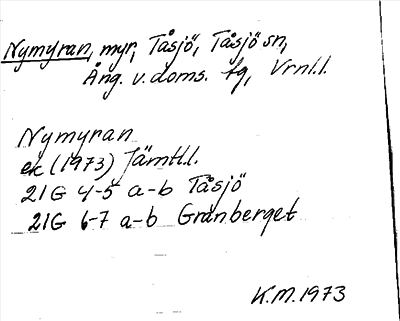 Nymyran, myr, Tåsjö, Tåsjö sn,
Ång. v. doms. fg, Vrnl.l.
Nymyran
ek (1973) Jämtl.l.
21G 4-5 a-b Tåsjö
21G 6-7 a-b Granberget
K.M. 1973